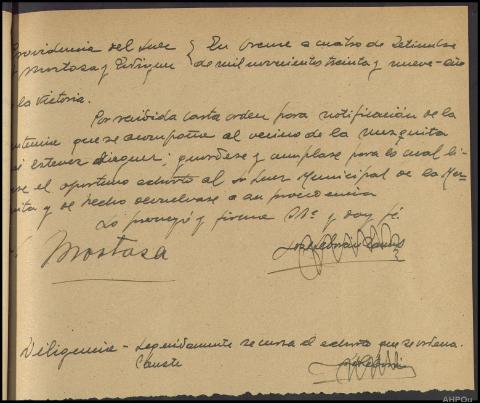 Providencia del Juez } En Orense a cuatro de Setiembre
Mostasa y Enriquez } de mil novecientos treinta y nueve-Año
la Victoria.
Por recibida carta orden para notificación de la
que se acompaña al vecino de la Mezquita
Esteves Dieguez; guardese y cumplase para lo cual li-
se el oportuno exhorto al Sr Juez Municipal de la Mez-
quita y de hecho devuelvase a su procedencia
Lo proveyó y firma S.Sª y doy fé.
Mostasa
Diligencia - Seguidamente se cursa el exhorto que se ordena.
AHPOu